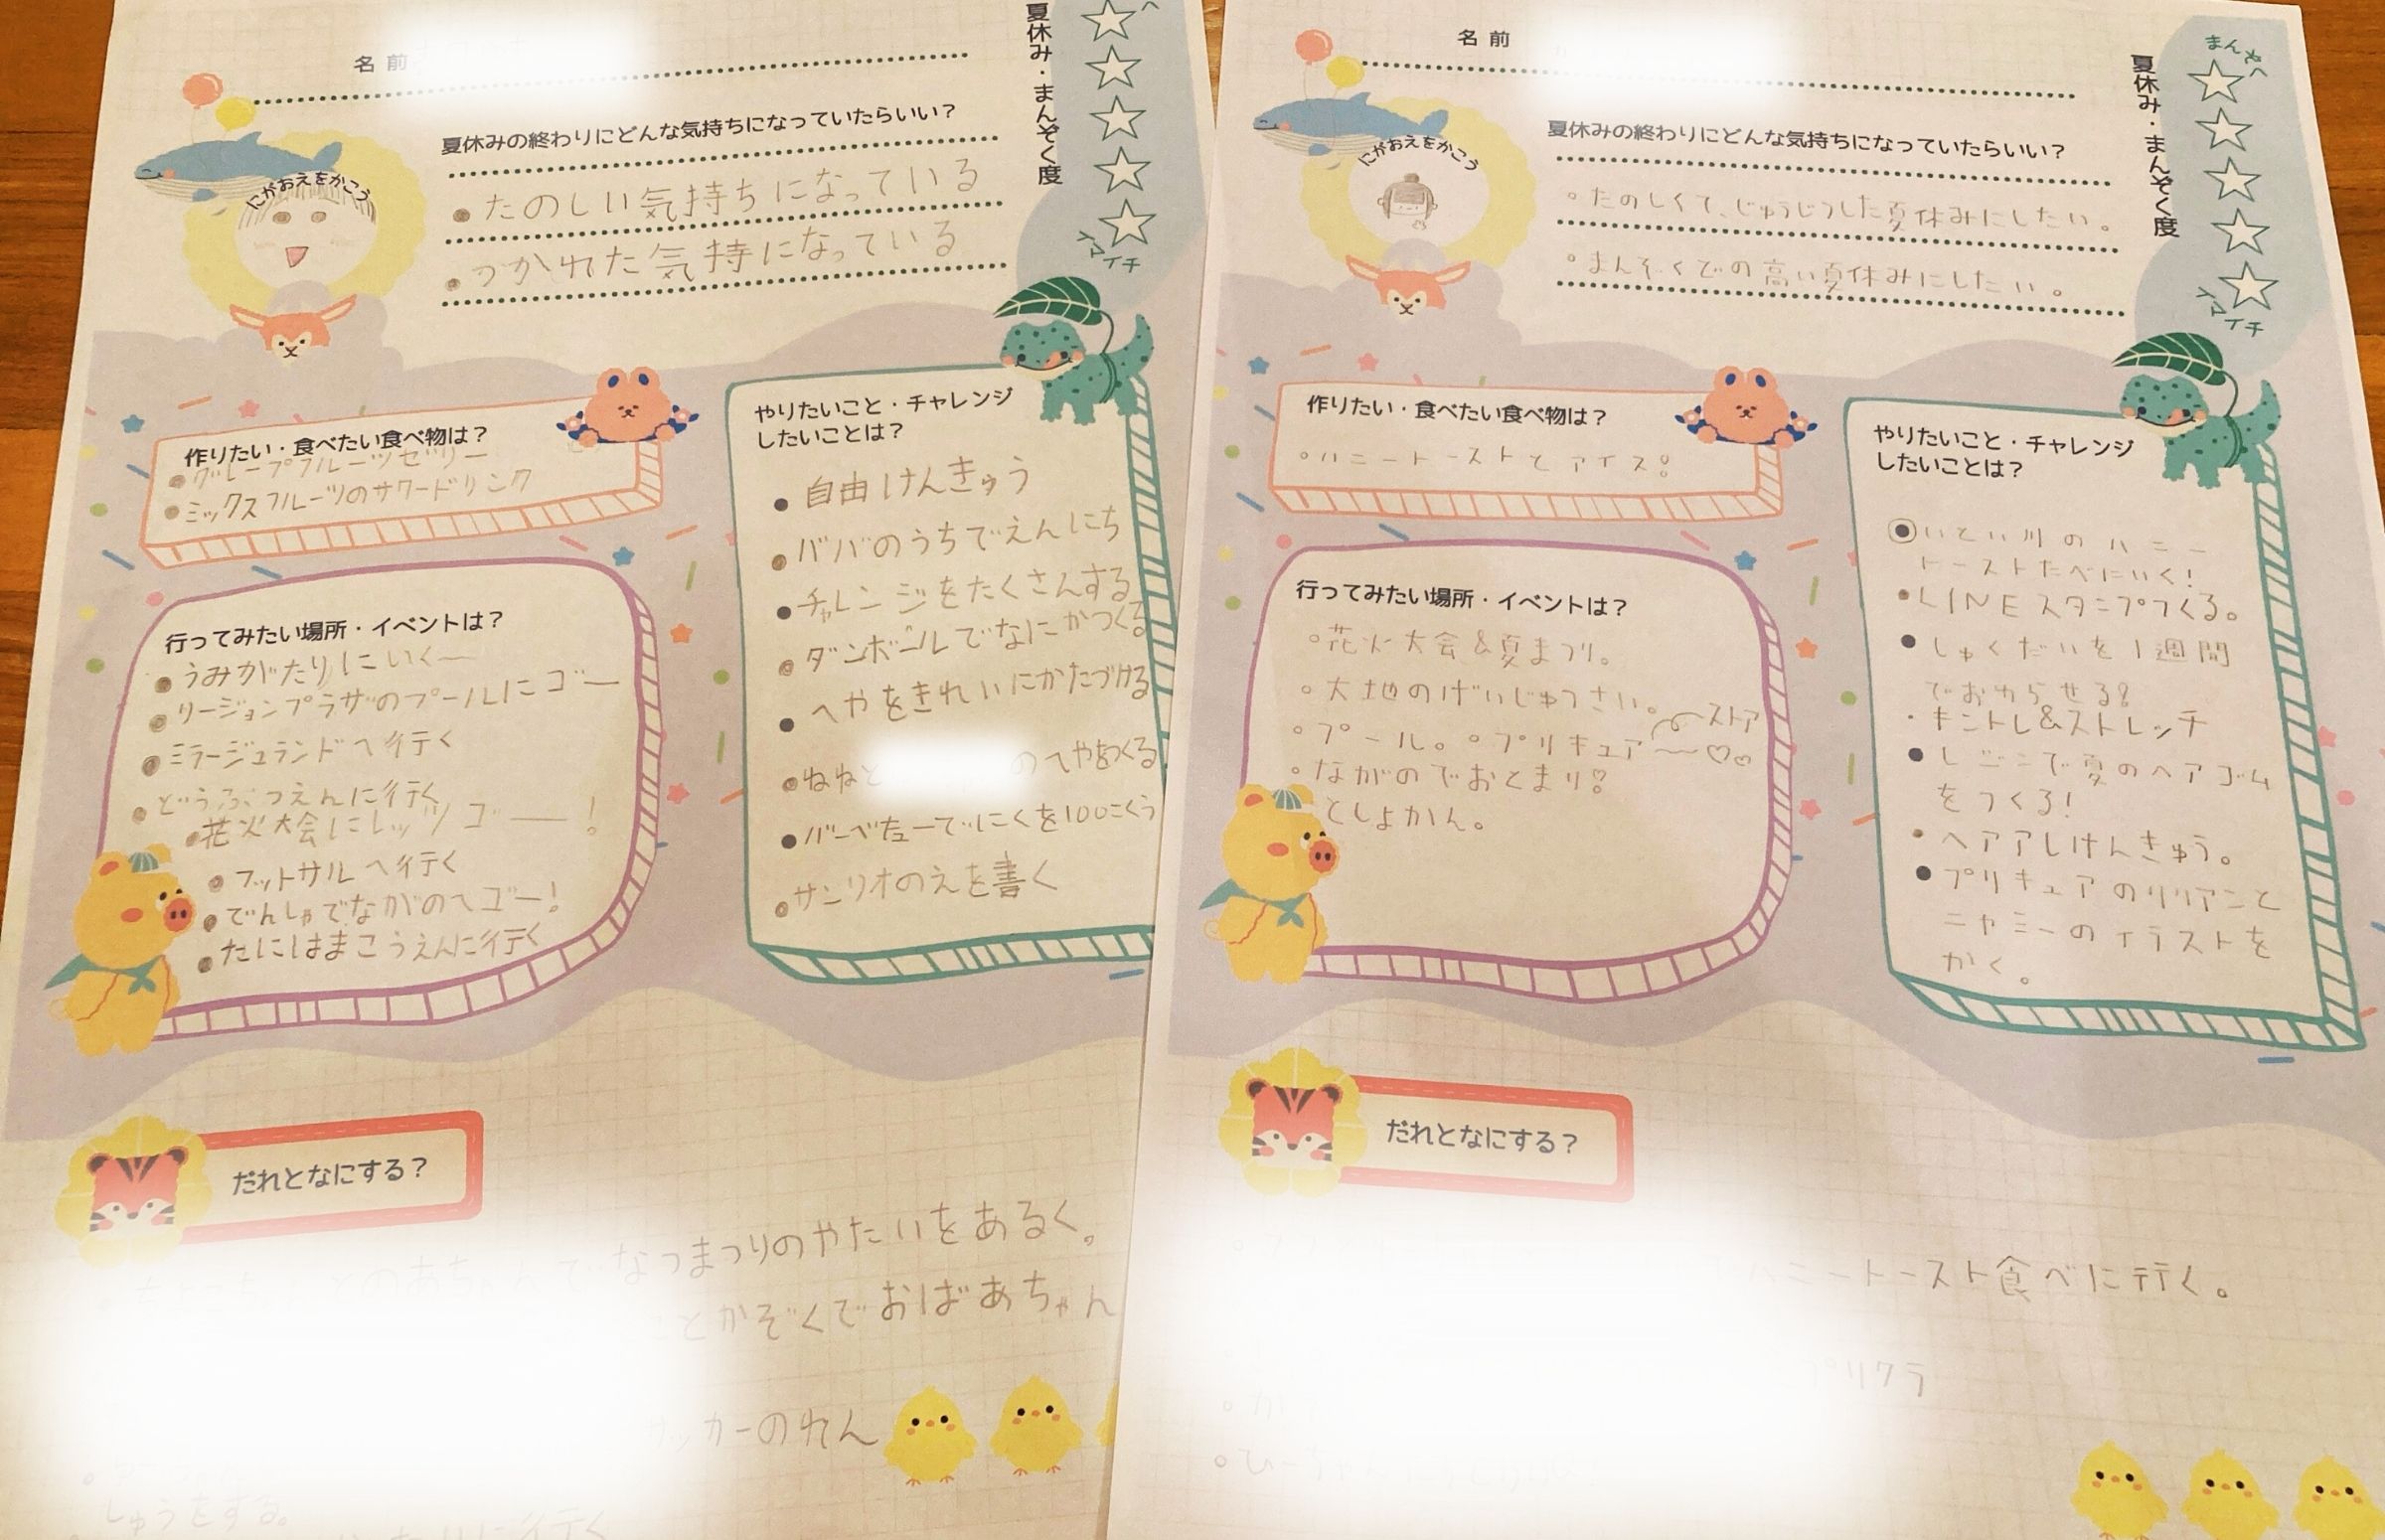 名前
夏休みの終わりにどんな気持ちになっていたらいい？
たのしい気持ちになっている
つかれた気持になっている
夏休み・まんぞく度
イマイチ
にがおえをかこう
作りたい・食べたい食べ物は？
グレープフルーツゼリー
ミックスフルーツのサワードリンク
行ってみたい場所・イベントは？
うみがたりにいくー
リージョンプラザのプールにゴー
ミラージュランドへ行く
どうぶつえんに行く
花火大会にレッツゴー！
フットサルへ行く
でんしゃでながのへゴー！
たにはまこうえんに行く
やりたいこと・チャレンジ
したいことは？
自由けんきゅう
ババのうちでえんにち
チャレンジをたくさんする
ダンボールでなにかつくる
へやをきれいにかたづける
ねねと
のへやをつくる
バーベキューでにくを100こくう
サンリオのえを書く
だれとなにする？
なつまつりのやたいをあるく。
とかぞくでおばあちゃん
サッカーのれん
しゅうをする。
に行く
名前
夏休みの終わりにどんな気持ちになっていたらいい？
たのしくて、じゅうじつした夏休みにしたい。
まんぞくどの高い夏休みにしたい。
夏休み・まんぞく度
まんぞく
イマイチ
にがおえをかこう
作りたい・食べたい食べ物は？
ハニートーストとアイス!
行ってみたい場所・イベントは？
花火大会&夏まつり。
大地のげいじゅつさい。
プール。プリキュアストア〜〜♡♡
ながのでおとまり!
としょかん。
やりたいこと・チャレンジ
したいことは？
いとい川のハニー
トーストたべにいく！
LINEスタンプつくる。
しゅくだいを1週間
でおわらせる!
キントレ&ストレッチ
レジンで夏のヘアゴム
をつくる！
ヘアアレけんきゅう。
プリキュアのリリアンと
ニャミーのイラストを
かく。
だれとなにする？
ハニートースト食べに行く。
プリクラ